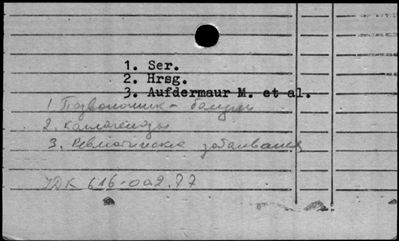 1. Ser.
2. Hrsg.
3. Aufdermaur M. et al.
1 Позвоночник - болезни
2. Коллагенозы
3. Ревматические заболевания
УДК 616-002.77